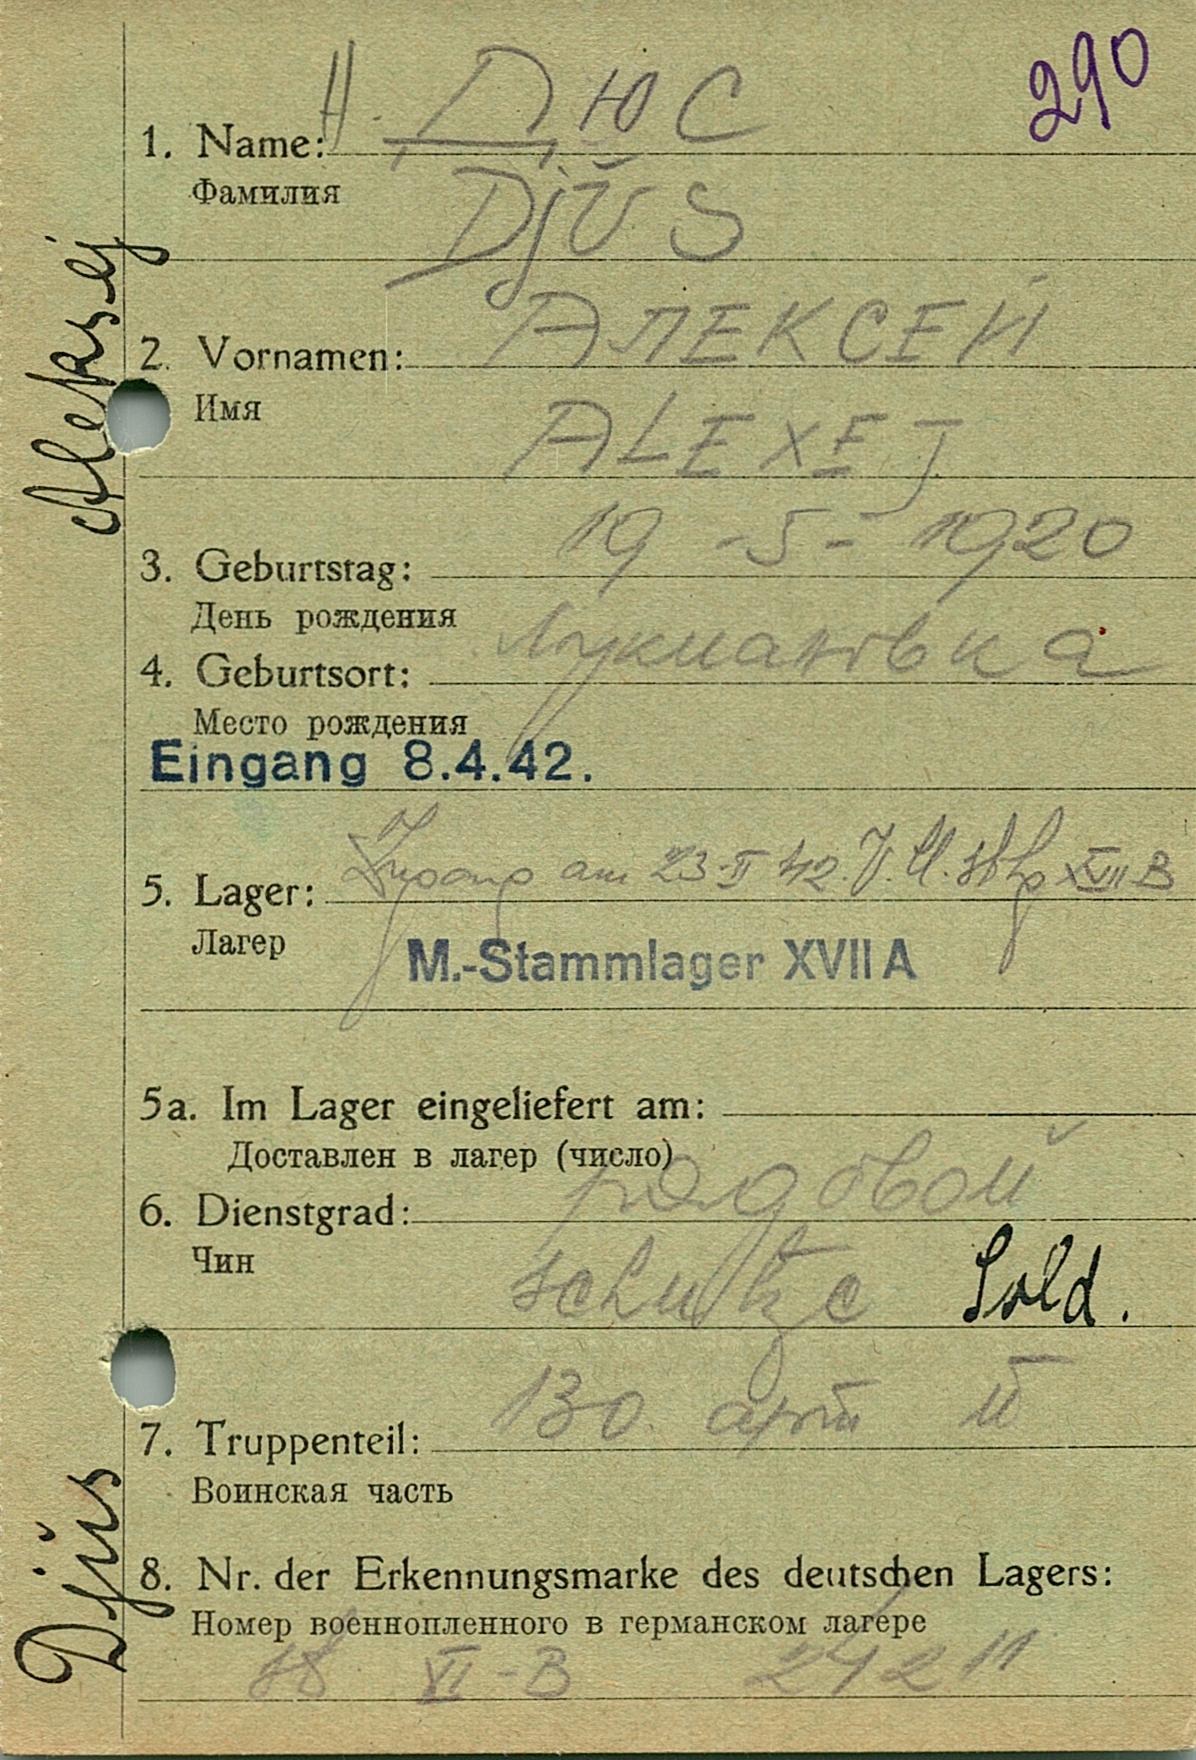 290
H. ДЮС
1. Name:
Фамилия
Djŭs
АЛЕКСЕЙ
2. Vornamen:
Имя
ALEXEJ
19 - 5 - 1920
3. Geburtstag:
День рождения
Лукмановка
4. Geburtsort:
Место рождения
Eingang 8.4.42.
Zugang am 23.II 42. XVII B
5. Lager:
Лагер
M.-Stammlager XVII A
5a. Im Lager eingeliefert am:
Доставлен в лагер (число)
рядовой
6. Dienstgrad:
Чин
schutze Sold.
130 арт п
7. Truppenteil:
Воинская часть
8. Nr. der Erkennungsmarke des deutschen Lagers:
Номер военнопленного в германском лагере
-B 24211
Aleksej
Djŭs